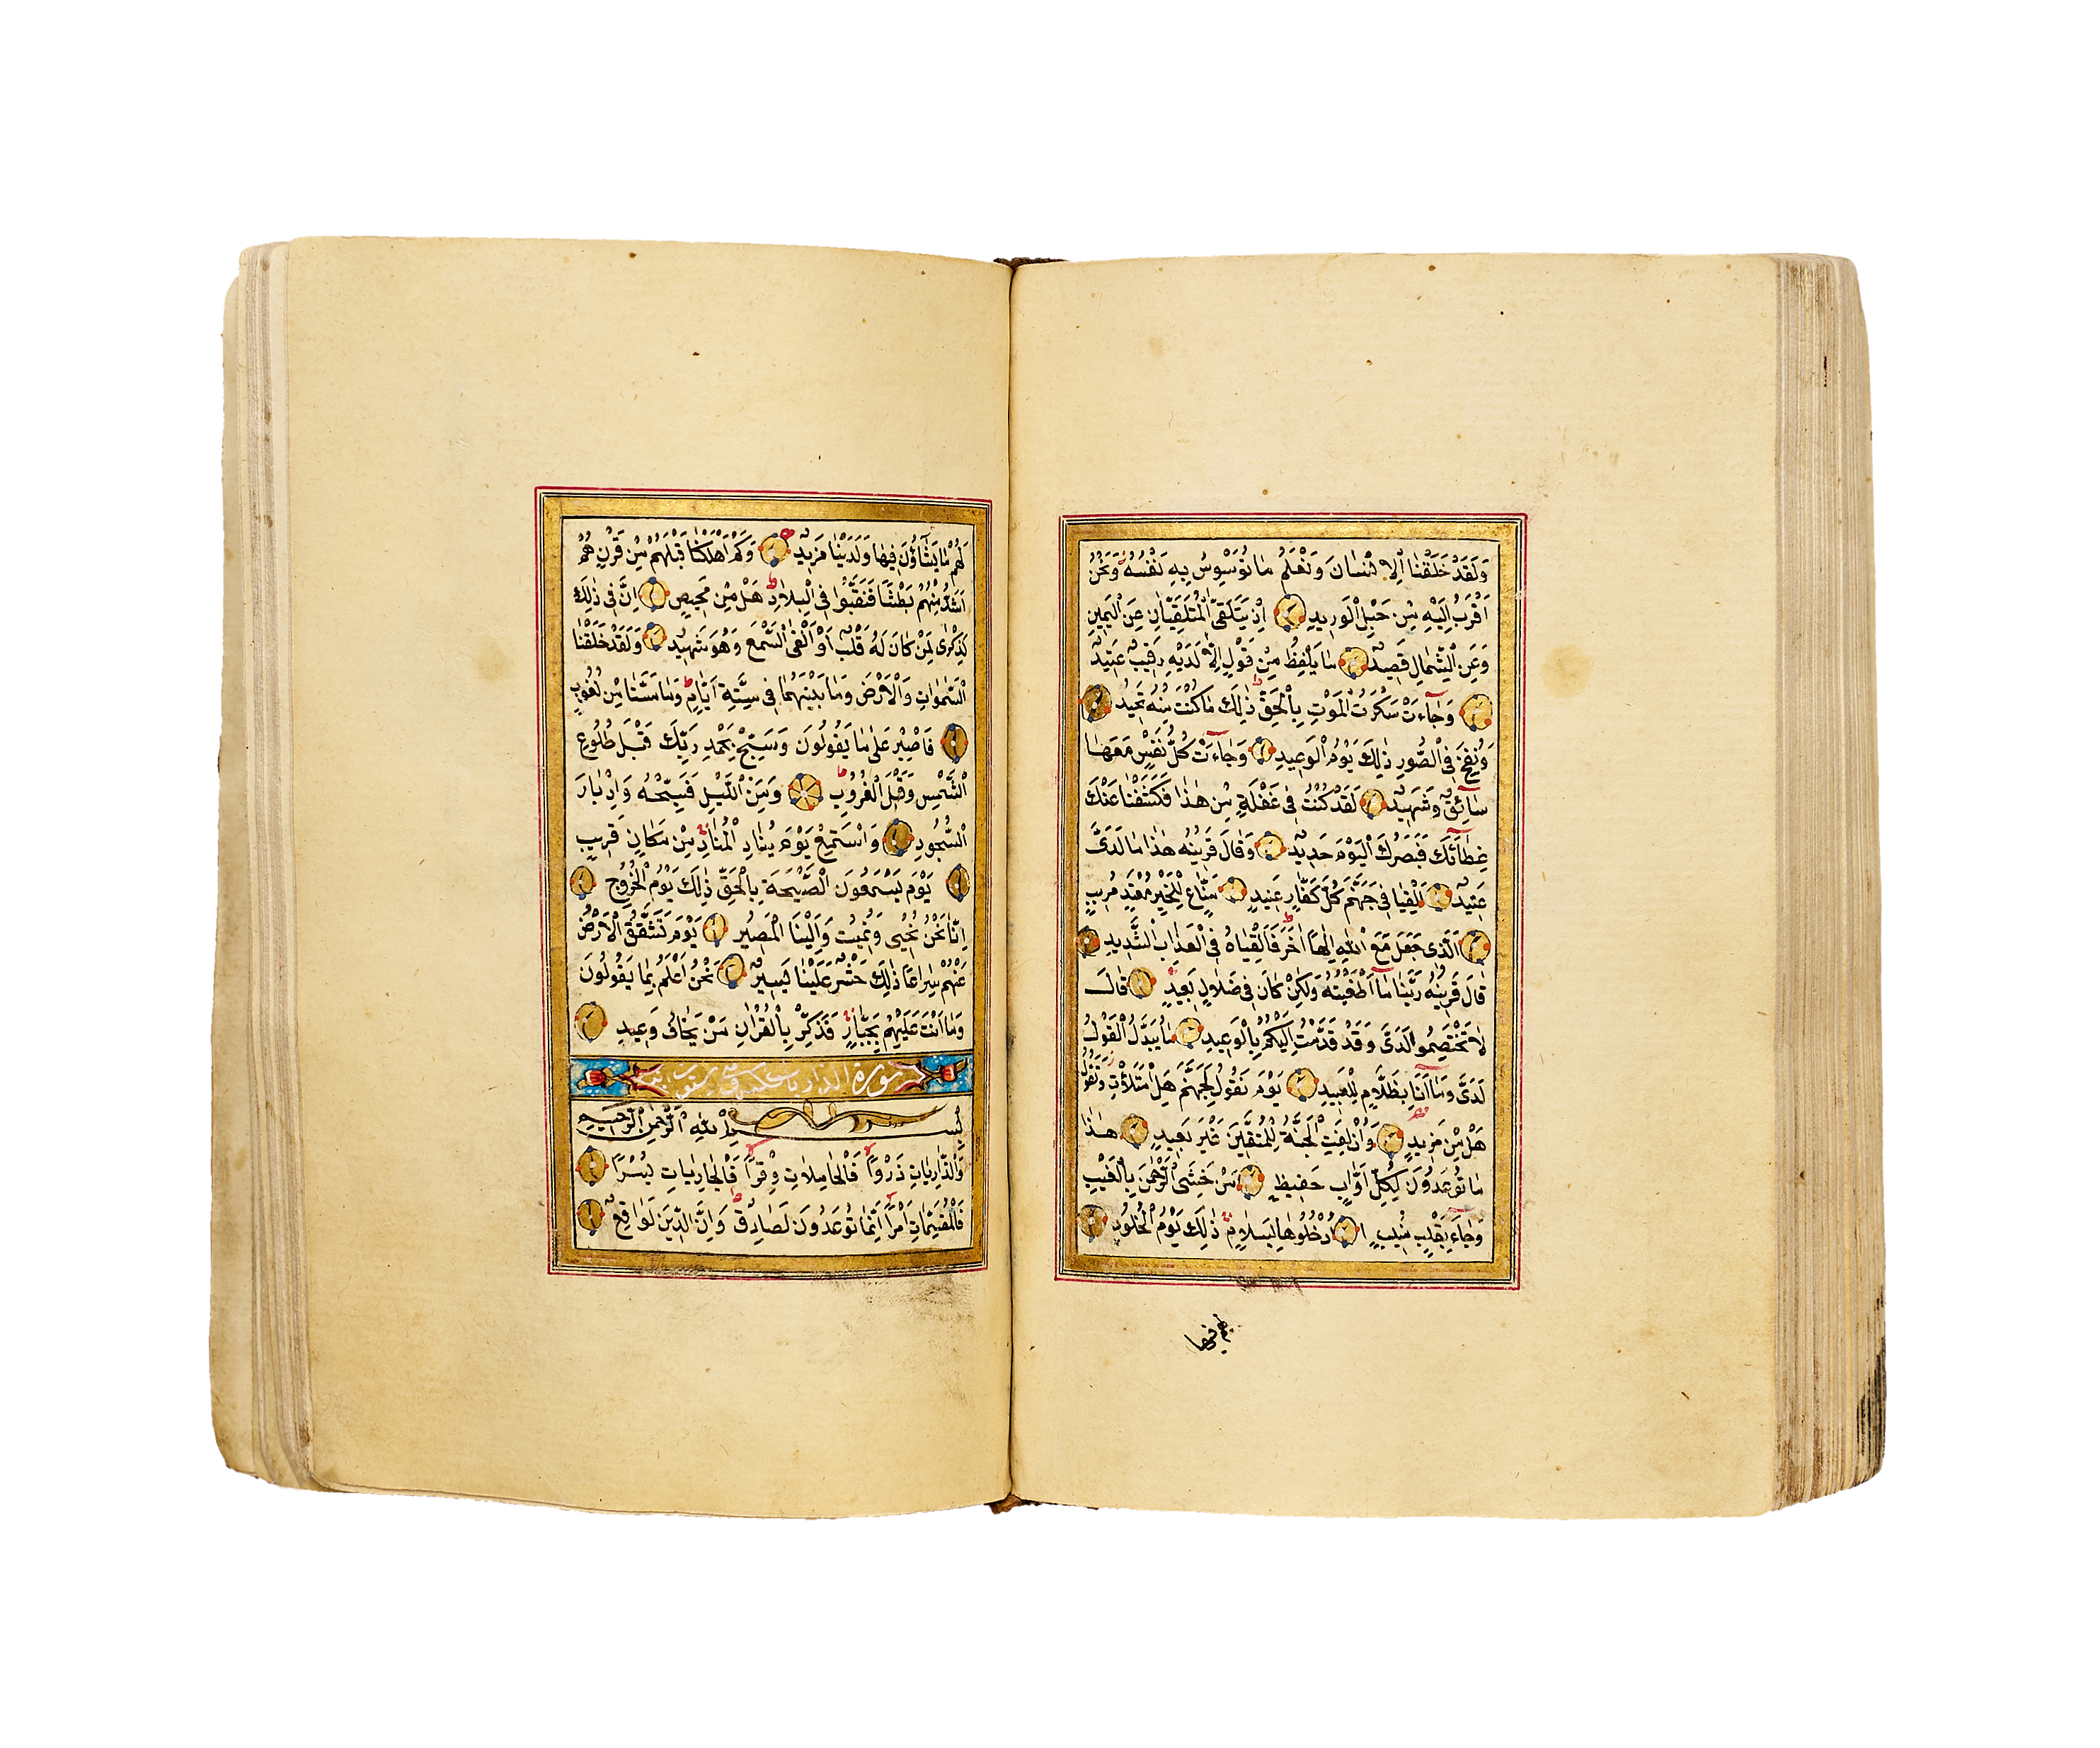 وَلَقَدْ خَلَقْنَا الْاِنْسَانَ وَنَعْلَمُ مَا تُوَسْوِسُ بِهِ نَفْسُهُ وَنَحْنُ
اَقْرَبُ اِلَيْهِ مِنْ حَبْلِ الْوَرِيدِ اِذْ يَتَلَقَّى الْمُتَلَقِّيَانِ عَنِ الْيَمِينِ
وَعَنِ الشِّمَالِ قَعِيدٌ مَا يَلْفِظُ مِنْ قَوْلٍ اِلَّا لَدَيْهِ رَقِيبٌ عَتِيدٌ
وَجَاءَتْ سَكْرَتُ الْمَوْتِ بِالْحَقِّ ذٰلِكَ مَا كُنْتَ مِنْهُ تَحِيدُ
وَنُفِخَ فِي الصُّورِ ذٰلِكَ يَوْمُ الْوَعِيدِ وَجَاءَتْ كُلُّ نَفْسٍ مَعَهَا
سَائِقٌ وَشَهِيدٌ لَقَدْ كُنْتَ فِي غَفْلَةٍ مِنْ هٰذَا فَكَشَفْنَا عَنْكَ
غِطَاءَكَ فَبَصَرُكَ الْيَوْمَ حَدِيدٌ وَقَالَ قَرِينُهُ هٰذَا مَا لَدَيَّ
عَتِيدٌ اَلْقِيَا فِي جَهَنَّمَ كُلَّ كَفَّارٍ عَنِيدٍ مَنَّاعٍ لِلْخَيْرِ مُعْتَدٍ مُرِيبٍ
اَلَّذِي جَعَلَ مَعَ اللّٰهِ اِلٰهًا اٰخَرَ فَاَلْقِيَاهُ فِي الْعَذَابِ الشَّدِيدِ
قَالَ قَرِينُهُ رَبَّنَا مَا اَطْغَيْتُهُ وَلٰكِنْ كَانَ فِي ضَلَالٍ بَعِيدٍ قَالَ
لَا تَخْتَصِمُوا لَدَيَّ وَقَدْ قَدَّمْتُ اِلَيْكُمْ بِالْوَعِيدِ مَا يُبَدَّلُ الْقَوْلُ
لَدَيَّ وَمَا اَنَا بِظَلَّامٍ لِلْعَبِيدِ يَوْمَ نَقُولُ لِجَهَنَّمَ هَلِ امْتَلَأْتِ وَتَقُولُ
هَلْ مِنْ مَزِيدٍ وَاُزْلِفَتِ الْجَنَّةُ لِلْمُتَّقِينَ غَيْرَ بَعِيدٍ هٰذَا
مَا تُوعَدُونَ لِكُلِّ اَوَّابٍ حَفِيظٍ مَنْ خَشِيَ الرَّحْمٰنَ بِالْغَيْبِ
وَجَاءَ بِقَلْبٍ مُنِيبٍ اُدْخُلُوهَا بِسَلَامٍ ذٰلِكَ يَوْمُ الْخُلُودِ
لهم فيها
لَهُمْ مَا يَشَاؤُنَ فِيهَا وَلَدَيْنَا مَزِيدٌ وَكَمْ اَهْلَكْنَا قَبْلَهُمْ مِنْ قَرْنٍ هُمْ
اَشَدُّ مِنْهُمْ بَطْشًا فَنَقَّبُوا فِي الْبِلَادِ هَلْ مِنْ مَحِيصٍ اِنَّ فِي ذٰلِكَ
لَذِكْرٰى لِمَنْ كَانَ لَهُ قَلْبٌ اَوْ اَلْقَى السَّمْعَ وَهُوَ شَهِيدٌ وَلَقَدْ خَلَقْنَا
السَّمٰوَاتِ وَالْاَرْضَ وَمَا بَيْنَهُمَا فِي سِتَّةِ اَيَّامٍ وَمَا مَسَّنَا مِنْ لُغُوبٍ
فَاصْبِرْ عَلٰى مَا يَقُولُونَ وَسَبِّحْ بِحَمْدِ رَبِّكَ قَبْلَ طُلُوعِ
الشَّمْسِ وَقَبْلَ الْغُرُوبِ وَمِنَ اللَّيْلِ فَسَبِّحْهُ وَاِدْبَارَ
السُّجُودِ وَاسْتَمِعْ يَوْمَ يُنَادِ الْمُنَادِ مِنْ مَكَانٍ قَرِيبٍ
يَوْمَ يَسْمَعُونَ الصَّيْحَةَ بِالْحَقِّ ذٰلِكَ يَوْمُ الْخُرُوجِ
اِنَّا نَحْنُ نُحْيِي وَنُمِيتُ وَاِلَيْنَا الْمَصِيرُ يَوْمَ تَشَقَّقُ الْاَرْضُ
عَنْهُمْ سِرَاعًا ذٰلِكَ حَشْرٌ عَلَيْنَا يَسِيرٌ نَحْنُ اَعْلَمُ بِمَا يَقُولُونَ
وَمَا اَنْتَ عَلَيْهِمْ بِجَبَّارٍ فَذَكِّرْ بِالْقُرْاٰنِ مَنْ يَخَافُ وَعِيدِ
سورة الذاريات
بِسْمِ اللّٰهِ الرَّحْمٰنِ الرَّحِيمِ
وَالذَّارِيَاتِ ذَرْوًا فَالْحَامِلَاتِ وِقْرًا فَالْجَارِيَاتِ يُسْرًا
فَالْمُقَسِّمَاتِ اَمْرًا اِنَّمَا تُوعَدُونَ لَصَادِقٌ وَاِنَّ الدِّينَ لَوَاقِعٌ